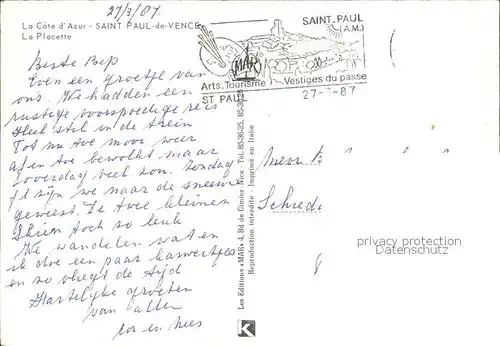 27/3/87
La Côte d'Azur - SAINT PAUL-de-VENCE
La Placette
SAINT. PAUL
(A.M.)
MAR
Arts. Tourisme Vestiges du passe
ST PAUL
27- -87
Beste Bep
Even een groetje van
ons. We hadden een
rustige voorspoedige reis
Heel stil in de trein
Tot nu toe mooi weer
af en toe bewolkt maar
overdag veel zon. Zondag
zijn we naar de sneeuw
geweest. De twee kleinen
skiën toch zo leuk
We wandelen wat en
ik doe een paar karweitjes
en zo vliegt de tijd
Hartelijke groeten
van allen
Cor en Kees
Les Editions «MAR» 4, Bd de Cimiez - Nice - Tél.
Reproduction interdite - Imprimé en Italie
Mevr
Schiede
privacy protection
Datenschutz
K